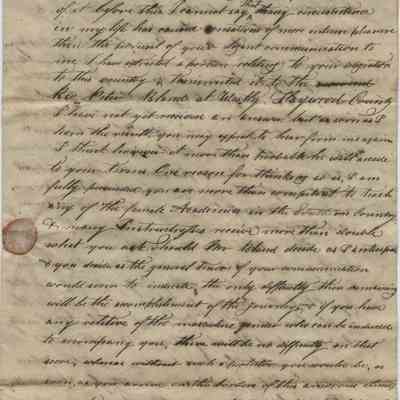 of it before this I cannot say that any circumstance
in my life has caused emotions of more intense pleasure
than the perusal of your
communication to
me I have extracted a portion relating to your
to this country & transmitted it to the
at
Haywood County
I have not yet received an answer but as soon as I
learn the result you may expect to hear from me again
I think however it more than probable he will accede
to your terms One reason for thinking so is, I am
fully persuaded you are more than competent to teach
any of the female Academies in the
Country
& many Instructresses receive more than double
what you ask should Mr
decide as I anticipate
& you decide as the general tenor of your communication
would seem to indicate, the only difficulty then remaining
will be the accomplishment of the journey, & if you have
any relative of the masculine gender who can be induced
to accompany you, there will be no difficulty on that
score, whereas without such a protector you would be, as
soon, as you arrive
of this